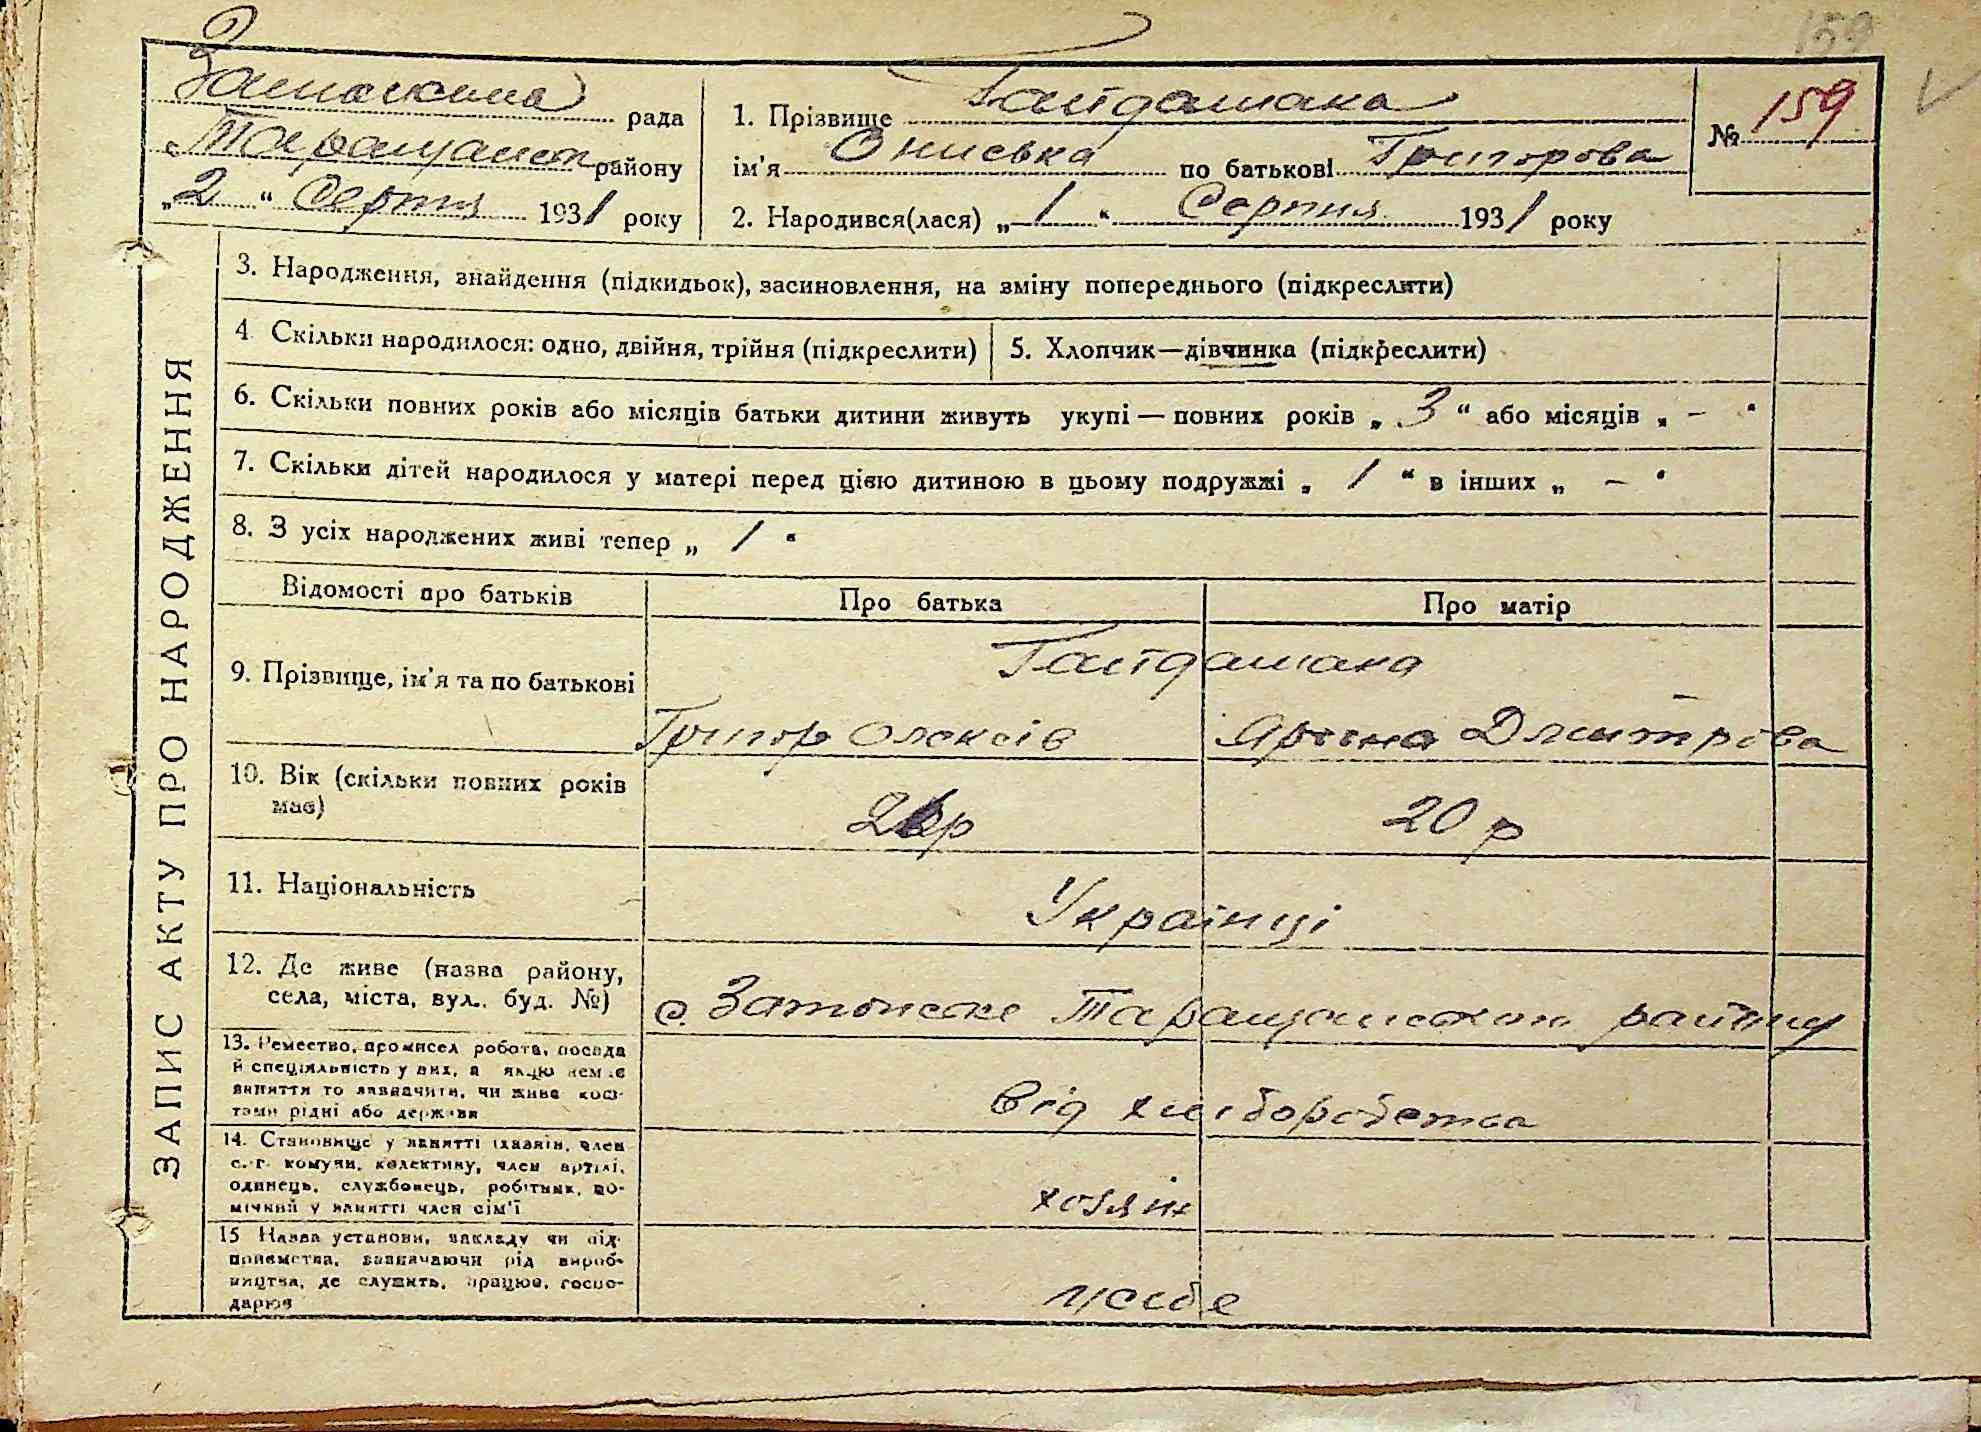 159
рада
Таращанськ району
„2“ Серпня 1931 року
1. Прізвище Гайдамака
ім'я Ониська по батькові Григорова
№ 159
2. Народився(лася) „1“ Серпня 1931 року
ЗАПИС АКТУ ПРО НАРОДЖЕННЯ
3. Народження, знайдення (підкидьок), засиновлення, на зміну попереднього (підкреслити)
4. Скільки народилося: одно, двійня, трійня (підкреслити)
5. Хлопчик—дівчинка (підкреслити)
6. Скільки повних років або місяців батьки дитини живуть укупі — повних років „ 3 “ або місяців „ – “
7. Скільки дітей народилося у матері перед цією дитиною в цьому подружжі „ 1 “ в інших „ – “
8. З усіх народжених живі тепер „ 1 “
Відомості про батьків Про батька Про матір
9. Прізвище, ім'я та по батькові
Гайдамака
Григор Олексів Дмитрова
10. Вік (скільки повних років
має)
20 р
11. Національність
Українці
12. Де живе (назва району,
села, міста, вул. буд. №)
с. Затонське Таращанського району
13. Ремество, промисел робота, посада
й спеціяльність у них, а якщо нем:є
заняття то зазначити, чи живе кош-
тами рідні або держави
від хліборобства
14. Становище у занятті (хазяїн, член
с.-г. комуни, колективу, член артілі,
одинець, службовець, робітник, по-
мічний у занятті член сім'ї
хозяїн
15 Назва установи, закладу чи під-
приємства, зазначаючи рід вироб-
ництва, де служить, працює, госпо-
дарює
у себе